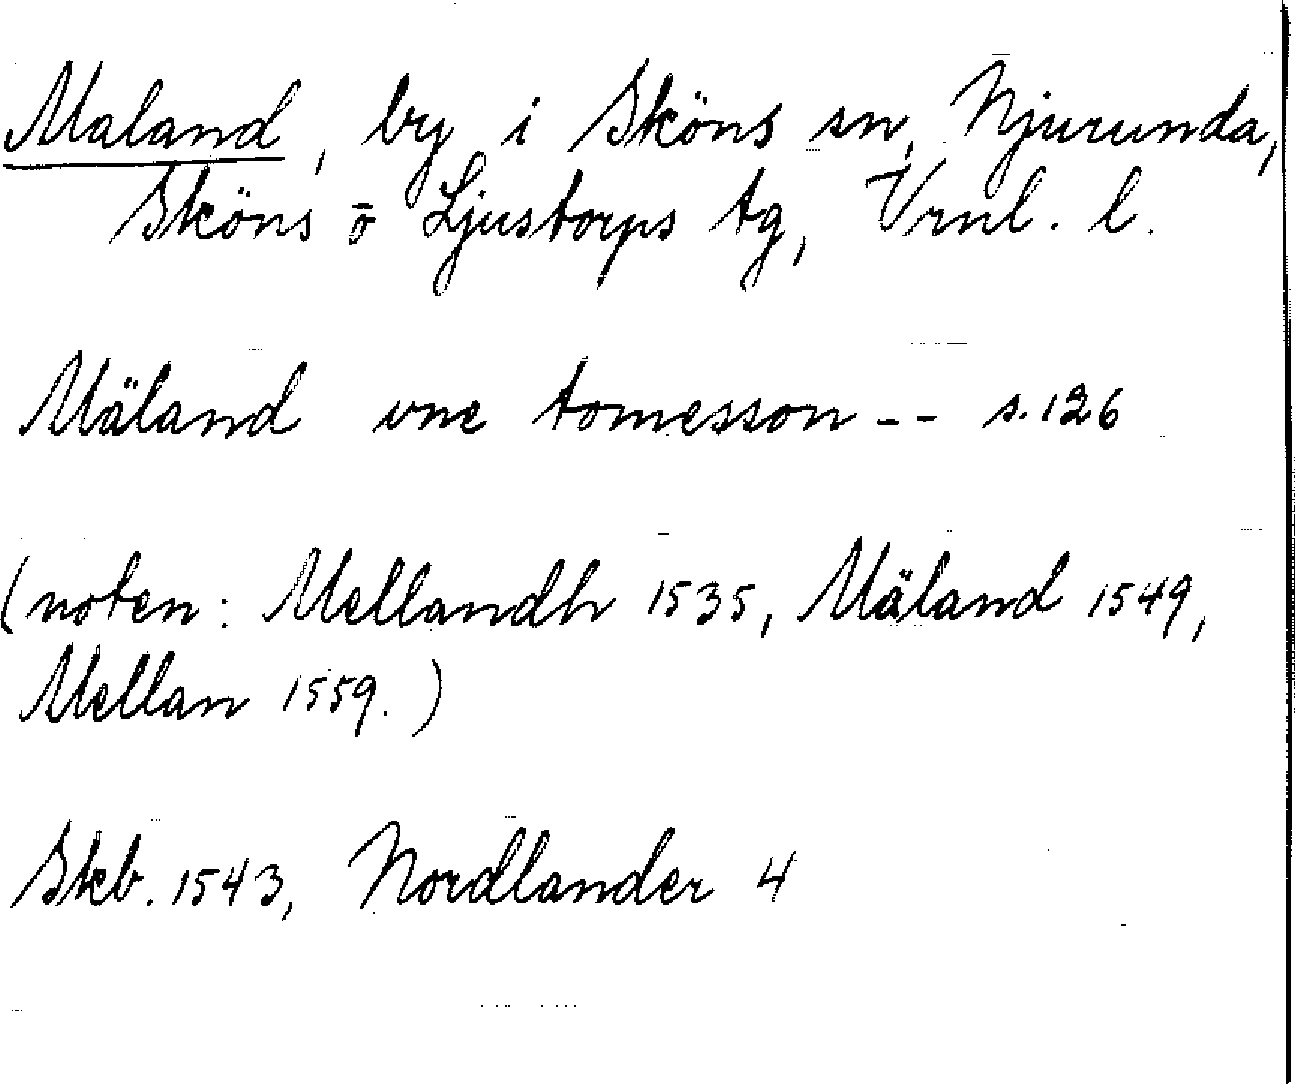 Maland, by i Sköns sn, Njurunda,
Sköns o Ljustorps tg, Vrnl. l.
Mäland vne tomesson -- s. 126
(noten: Mellandh 1535, Mäland 1549,
Mellan 1559.)
Skb. 1543, Nordlander 4